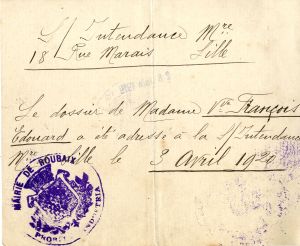 S/ Intendance Mre
18 Rue Marais Lille
Le dossier de Madame Vve François
Edouard a été adressé à la S/Intendance
Mre Lille le 3 Avril 1920
MAIRIE DE ROUBAIX
PROBITAS INDUSTRIA